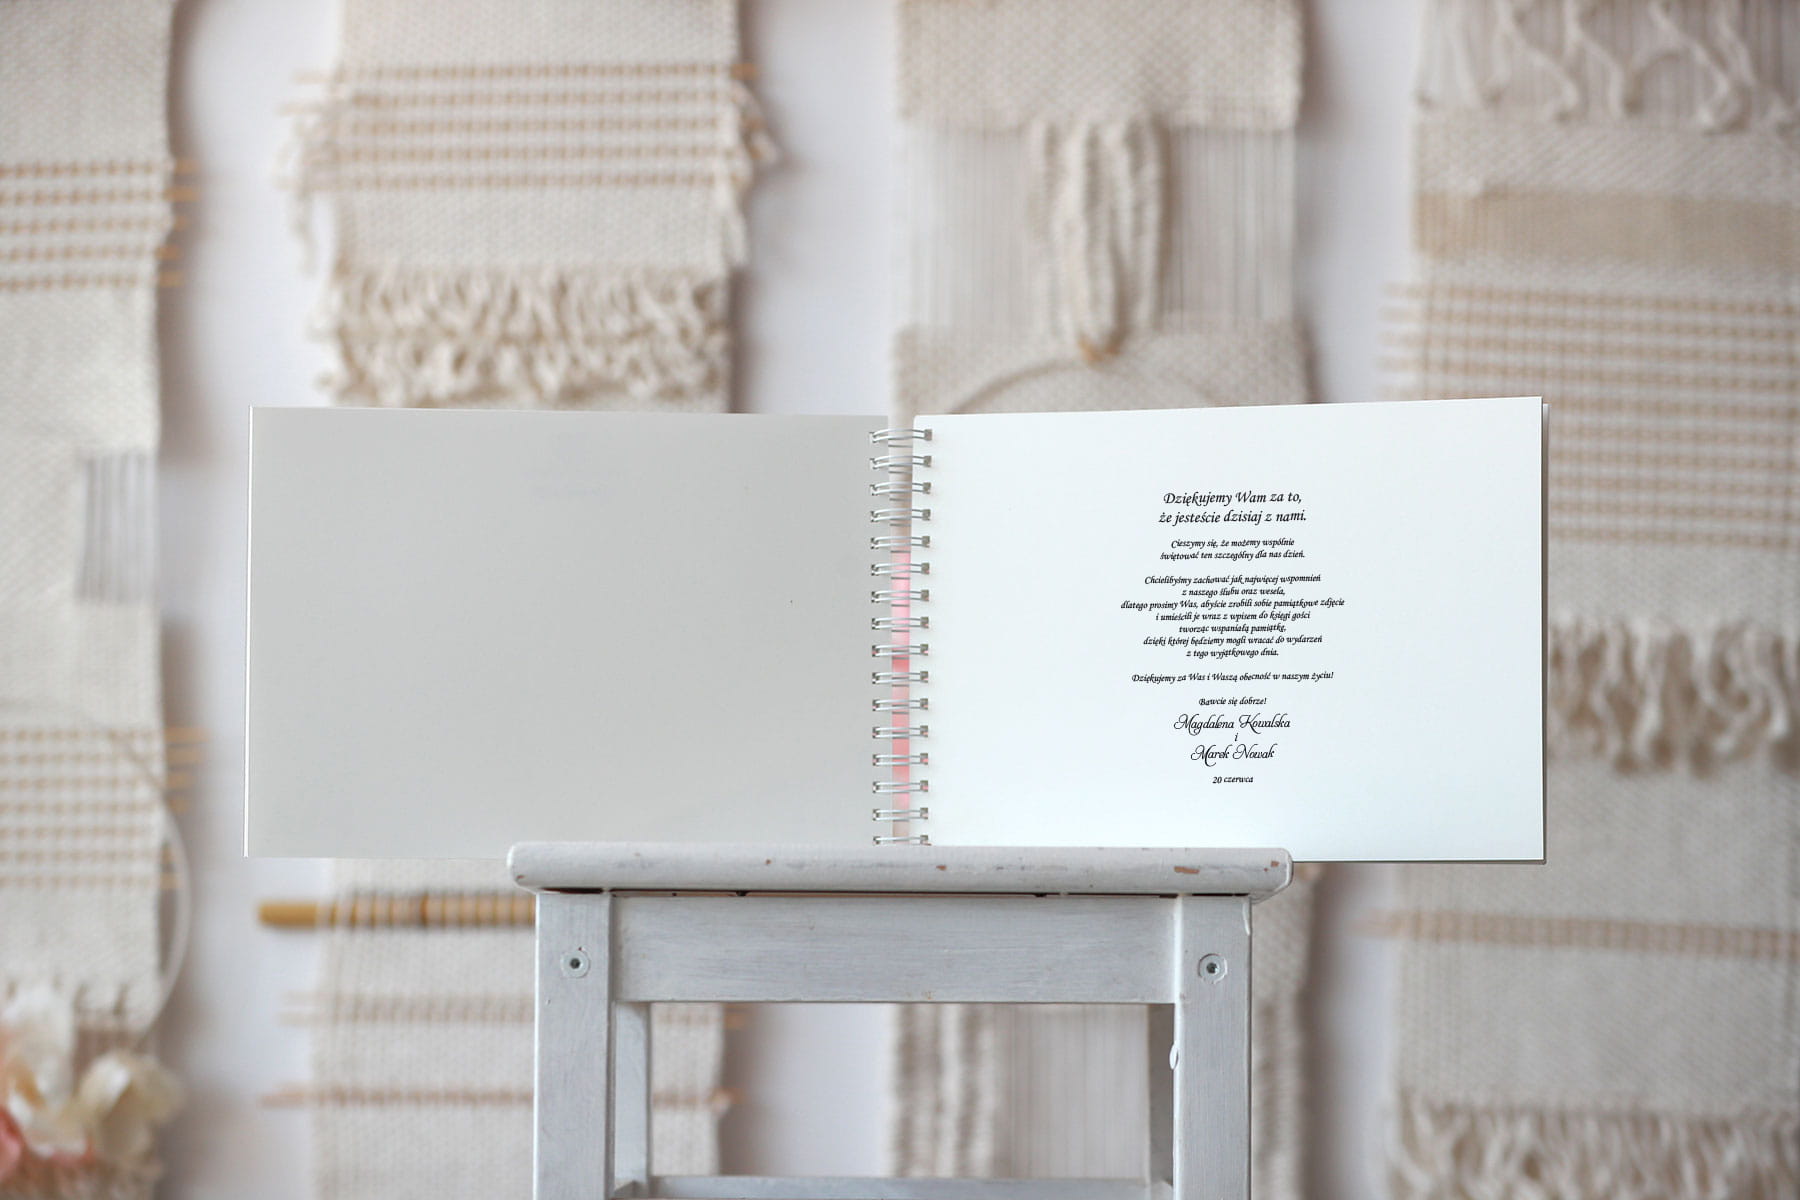 Dziękujemy Wam za to,
że jesteście dzisiaj z nami.
Cieszymy się, że możemy wspólnie
świętować ten szczególny dla nas dzień.
Chcielibyśmy zachować jak najwięcej wspomnień
z naszego ślubu oraz wesela,
dlatego prosimy Was, abyście zrobili sobie pamiątkowe zdjęcie
i umieścili je wraz z wpisem do księgi gości
tworząc wspaniałą pamiątkę,
dzięki której będziemy mogli wracać do wydarzeń
z tego wyjątkowego dnia.
Dziękujemy za Was i Waszą obecność w naszym życiu!
Bawcie się dobrze!
Magdalena Kowalska
i
Marek Nowak
20 czerwca